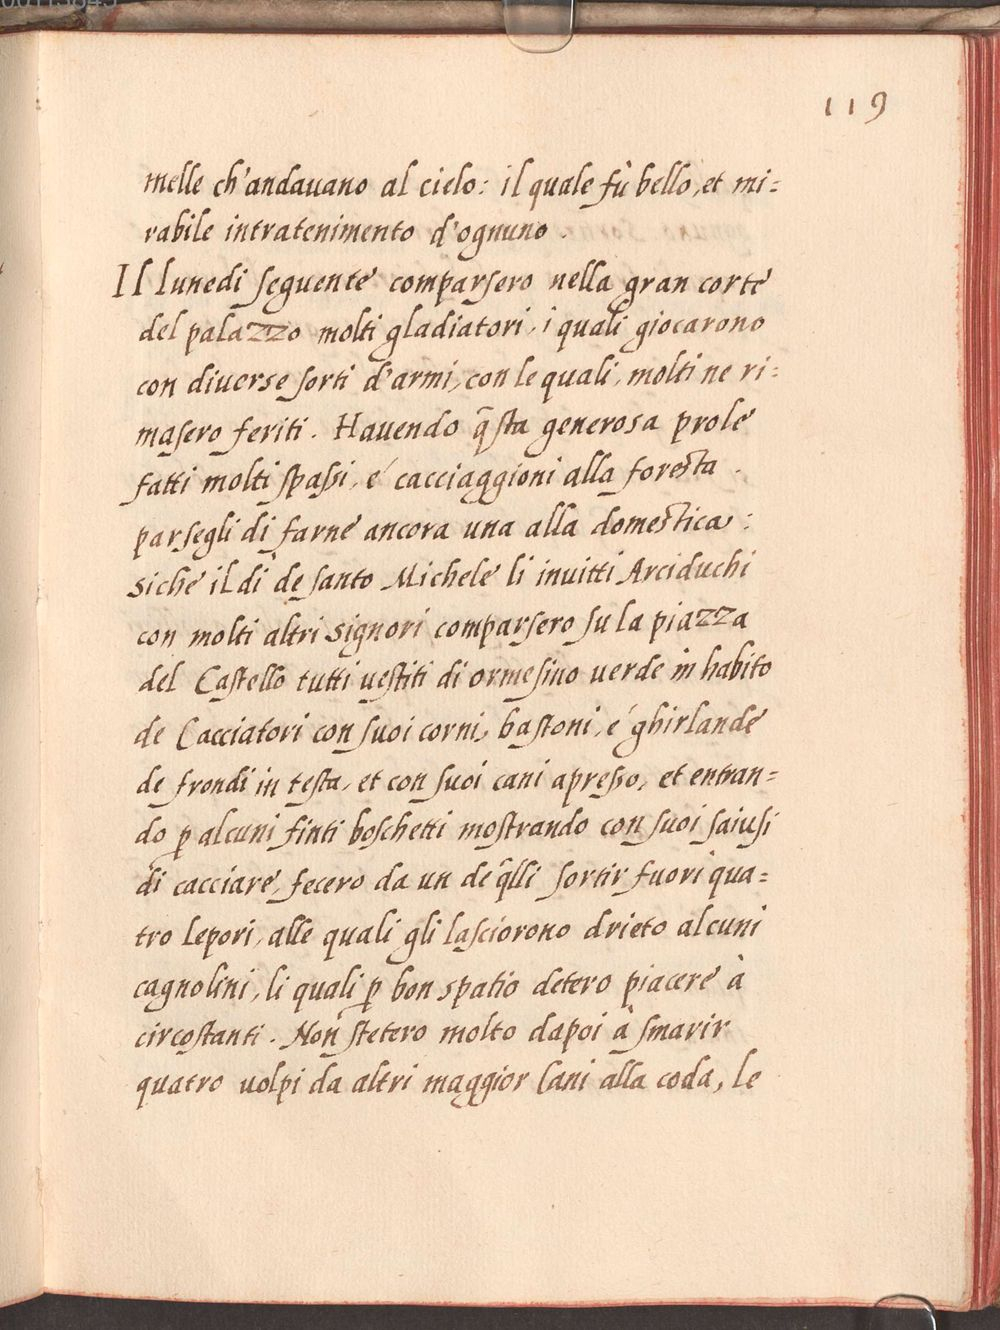 119
melle ch'andauano al cielo: il quale fù bello, et mi=
rabile intratenimento d'ognuno.
Il lunedi seguente comparsero nella gran corte
del palazzo molti gladiatori, i quali giocarono
con diuerse sorti d'armi, con le quali, molti ne ri=
masero feriti. Hauendo q̃sta generosa prole
fatti molti spassi, é cacciaggioni alla foresta.
parsegli di farne ancora una alla domestica:
siche il di de santo Michele li inuitti Arciduchi
con molti altri signori comparsero su la piazza
del Castello tutti uestiti di ormesino uerde in habito
de Cacciatori con suoi corni, bastoni, é ghirlande
de frondi in testa, et con suoi cani apresso, et entran=
do ꝑ alcuni finti boschetti mostrando con suoi saiusi
di cacciare, fecero da un de q̃lli sortir fuori qua=
tro lepori, alle quali gli lasciorono drieto alcuni
cagnolini, li quali ꝑ bon spatio detero piacere à
circostanti. Non stetero molto dapoi à smarir
quatro uolpi da altri maggior Cani alla coda, le